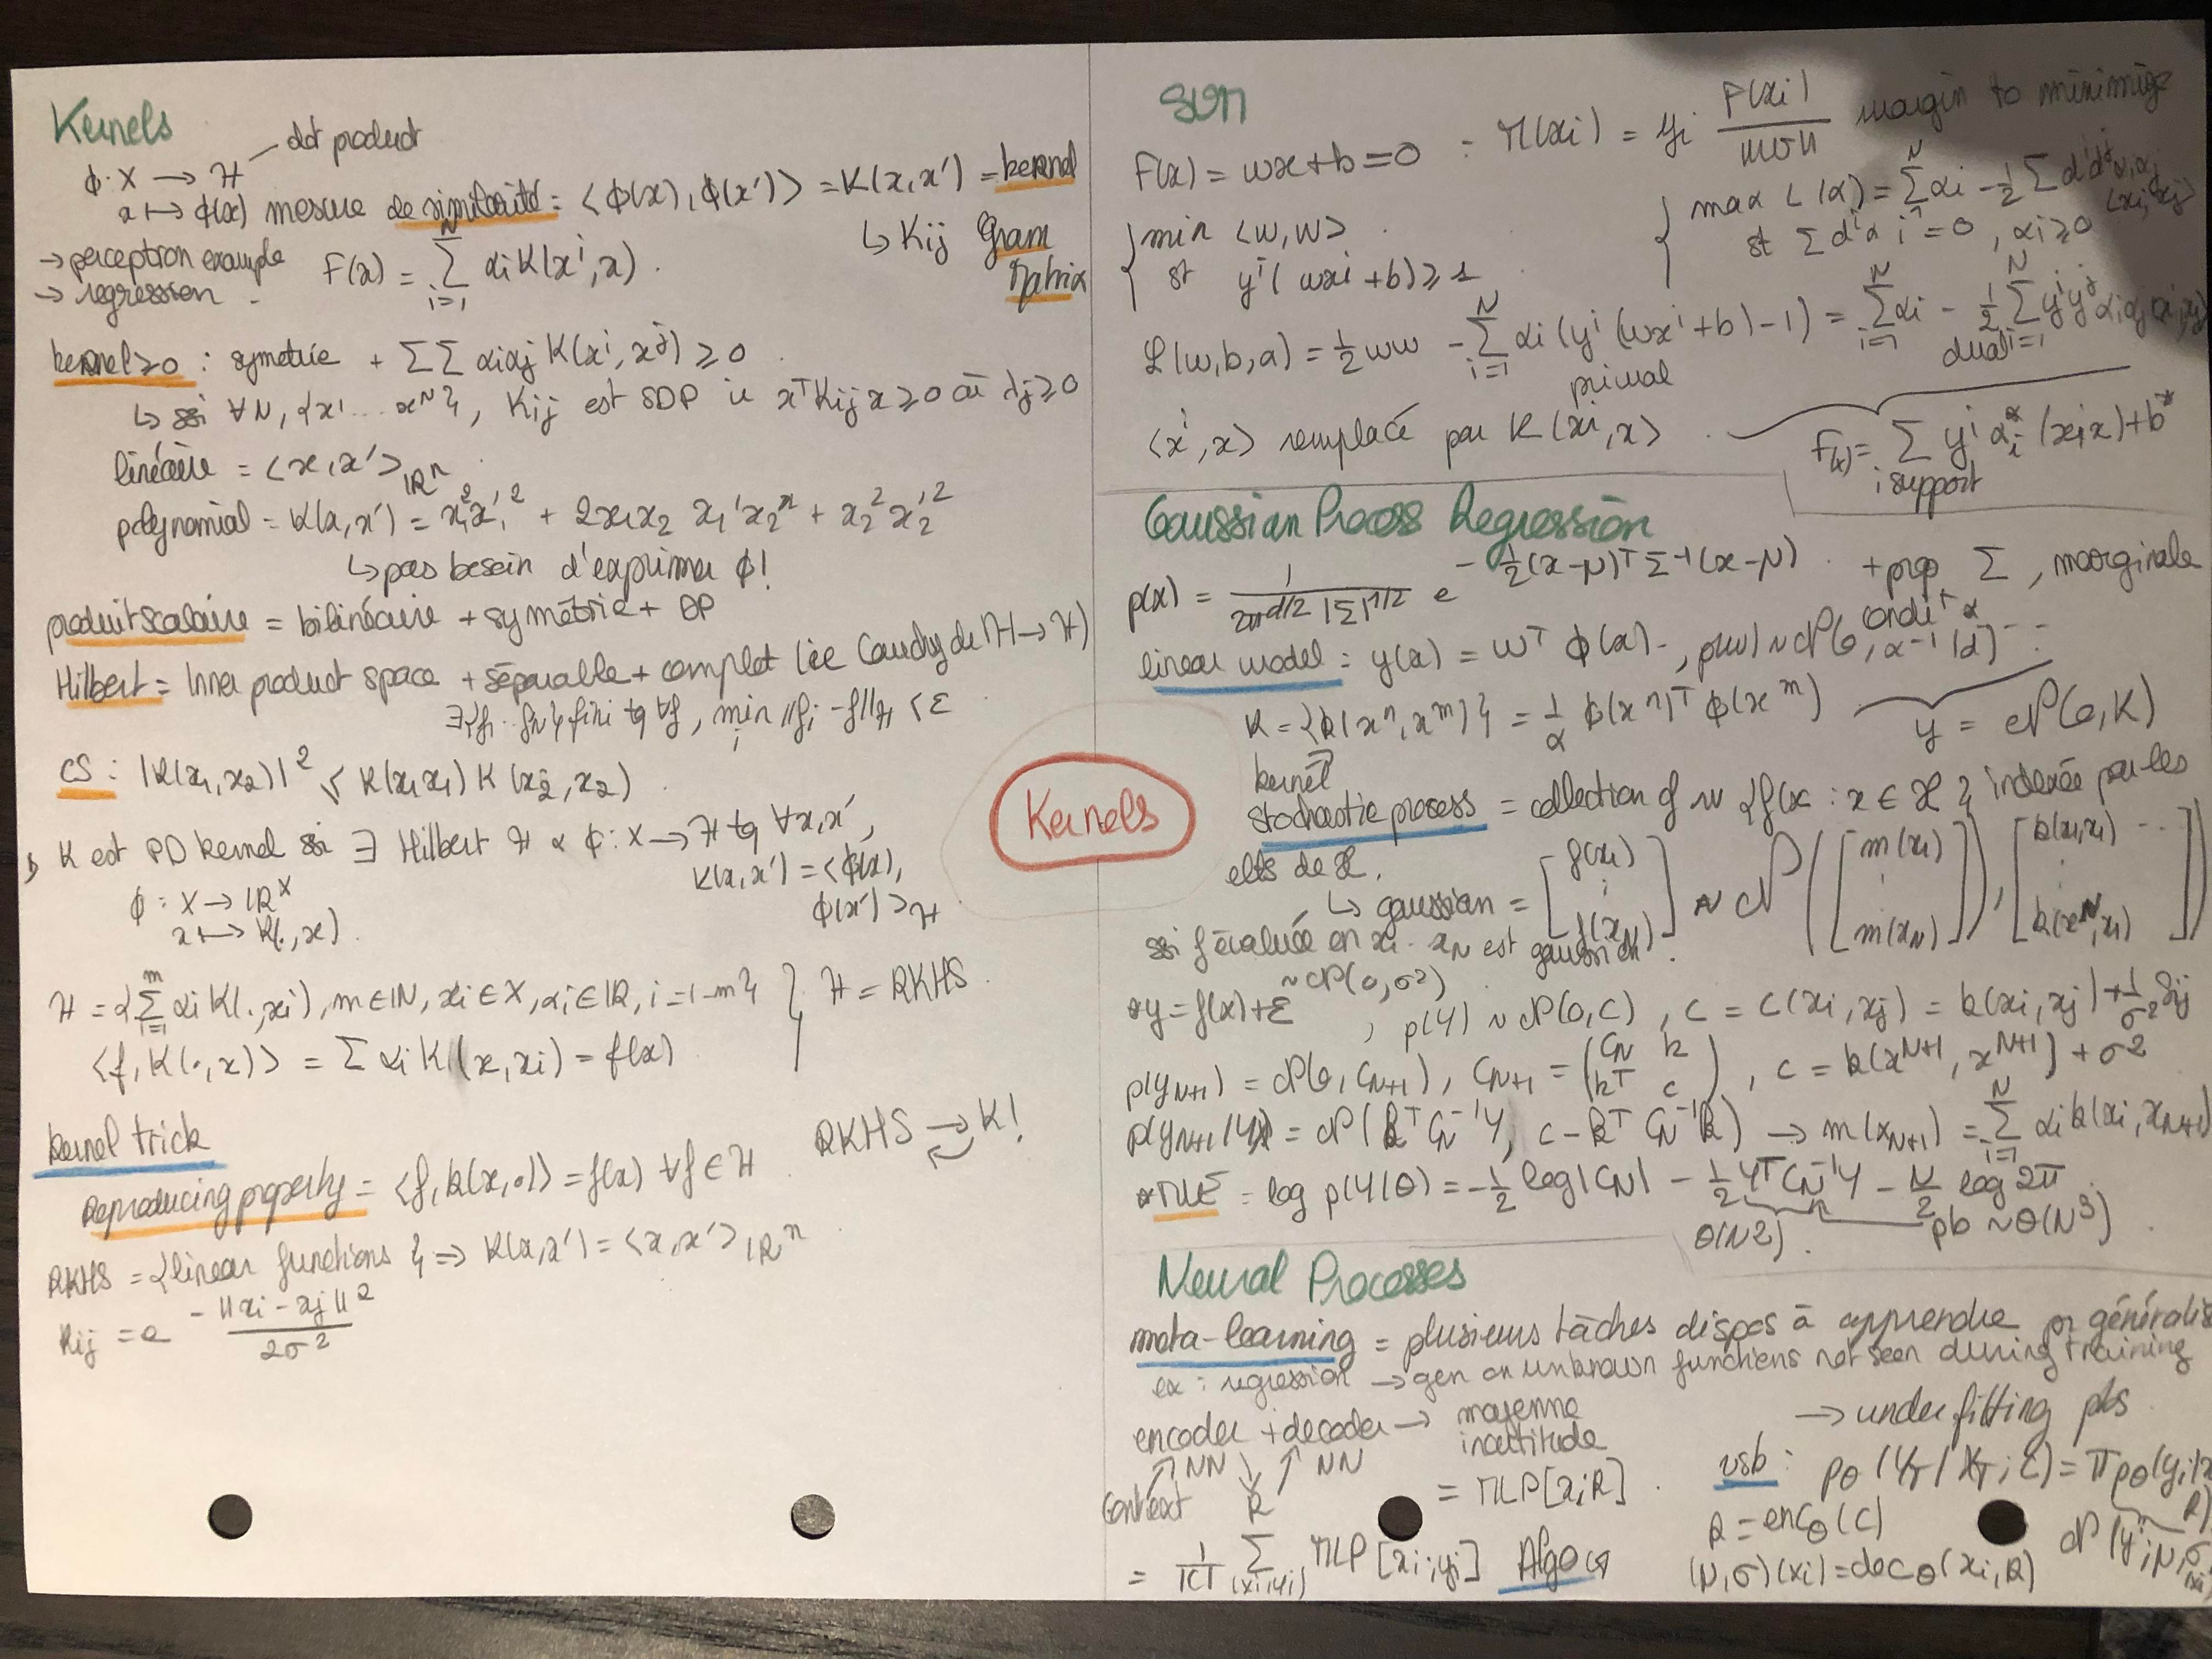 Kernels
ϕ: X → H — dot product
x ↦ ϕ(x) mesure de similarité: <ϕ(x), ϕ(x')> = K(x,x') = kernel
↳ Kij Gram Matrix
→ perceptron example
→ regression
F(x) = Σ_{i=1}^N αi K(x^i, x).
kernel ≥ 0 : symetrie + ΣΣ αiαj K(x^i, x^j) ≥ 0
↳ ssi ∀N, {x^1 ... x^N}, Kij est SDP ie x^T Kij x ≥ 0 où λj ≥ 0
linéaire = <x, x'>_{ℝ^n}
polynomial = K(x,x') = x1² x1'² + 2x1x2 x1'x2' + x2² x2'²
↳ pas besoin d'exprimer ϕ!
produit scalaire = bilinéaire + symétrie + DP
Hilbert = Inner product space + séparable + complet (ie Cauchy de H → H)
∃{f1...fN} fini tq ∀f, min_i ||fi - f||_H < ε
CS : |K(x1, x2)|² ≤ K(x1 x1) K(x2, x2)
K est PD kernel ssi ∃ Hilbert H & ϕ: X → H tq ∀x,x',
K(x,x') = <ϕ(x), ϕ(x')>_H
ϕ : X → ℝ^X
x ↦ K(., x)
H = {Σ_{i=1}^m αi K(., xi), m ∈ ℕ, xi ∈ X, αi ∈ ℝ, i = 1-m} } H = RKHS
<f, K(., x)> = Σ αi K(x, xi) = f(x)
kernel trick
RKHS → K!
Reproducing property = <f, k(x, .)> = f(x) ∀f ∈ H
RKHS = {linear functions} ⇒ K(x,x') = <x,x'>_{ℝ^n}
Kij = e^{-||xi - xj||² / 2σ²}
Kernels
SVM
F(x) = wx + b = 0 : M(xi) = yi F(xi)/||w|| margin to minimize
{ min <w,w>
st y^i (wxi + b) ≥ 1
{ max L(α) = Σ^N αi - ½ Σ d^i d^j αiαj <xi, xj>
st Σ d^i αi = 0, αi ≥ 0
L(w,b,a) = ½ ww - Σ_{i=1}^N αi (y^i (wx^i + b) - 1) = Σ_{i=1}^N αi - ½ Σ_{i=1}^N y^i y^j αi αj (xi, xj)
primal
dual
<x^i, x> remplacé par K(xi, x>
F(x) = Σ_{i support} y^i αi* (xi x) + b*
Gaussian Process Regression
p(x) = 1/(2π^{d/2} |Σ|^{1/2}) e^{-½(x-μ)^T Σ^{-1}(x-μ)} + prop Σ, marginale
condit
linear model : y(x) = w^T ϕ(x), p(w) ~ N(0, α^{-1} Id)
K = {k(x^n, x^m)} = 1/α ϕ(x^n)^T ϕ(x^m)
y = N(0, K)
kernel
stochastic process = collection of rv {f(x : x ∈ X} indexée par les
elts de X.
↳ gaussian = [f(x1) ⋮ f(xN)] ~ N([m(x1) ⋮ m(xN)], [k(x1,x1) ... k(x^N, x1)])
ssi f évaluée en x1 - xN est gaussien.
* y = f(x) + ε ~N(0, σ²), p(Y) ~ N(0, C), C = C(xi, xj) = k(xi, xj) + 1/σ² δij
p(yN+1) = N(0, CN+1), CN+1 = (CN k / k^T c), c = k(x^{N+1}, x^{N+1}) + σ²
p(yN+1 | Y) = N(k^T CN^{-1} Y, c - k^T CN^{-1} k) → m(xN+1) = Σ_{i=1}^N αi k(xi, xN+1)
* MLE = log p(Y|θ) = -½ log|CN| - ½ Y^T CN^{-1} Y - N/2 log 2π
θ(N²). pb ~ θ(N³)
Neural Processes
meta-learning = plusieurs tâches dispos à apprendre pr généralis
ex : regression → gen on unknown functions not seen during training
→ underfitting pbs
encoder + decoder → moyenne incertitude
NN NN
context R
= MLP[x, R].
= 1/|C| Σ_{(xi,yi)} MLP[xi; yi] Algo
pθ(YT | XT; C) = Π pθ(yi|x R)
R = encθ(C)
(μ,σ)(xi) = decθ(xi, R)